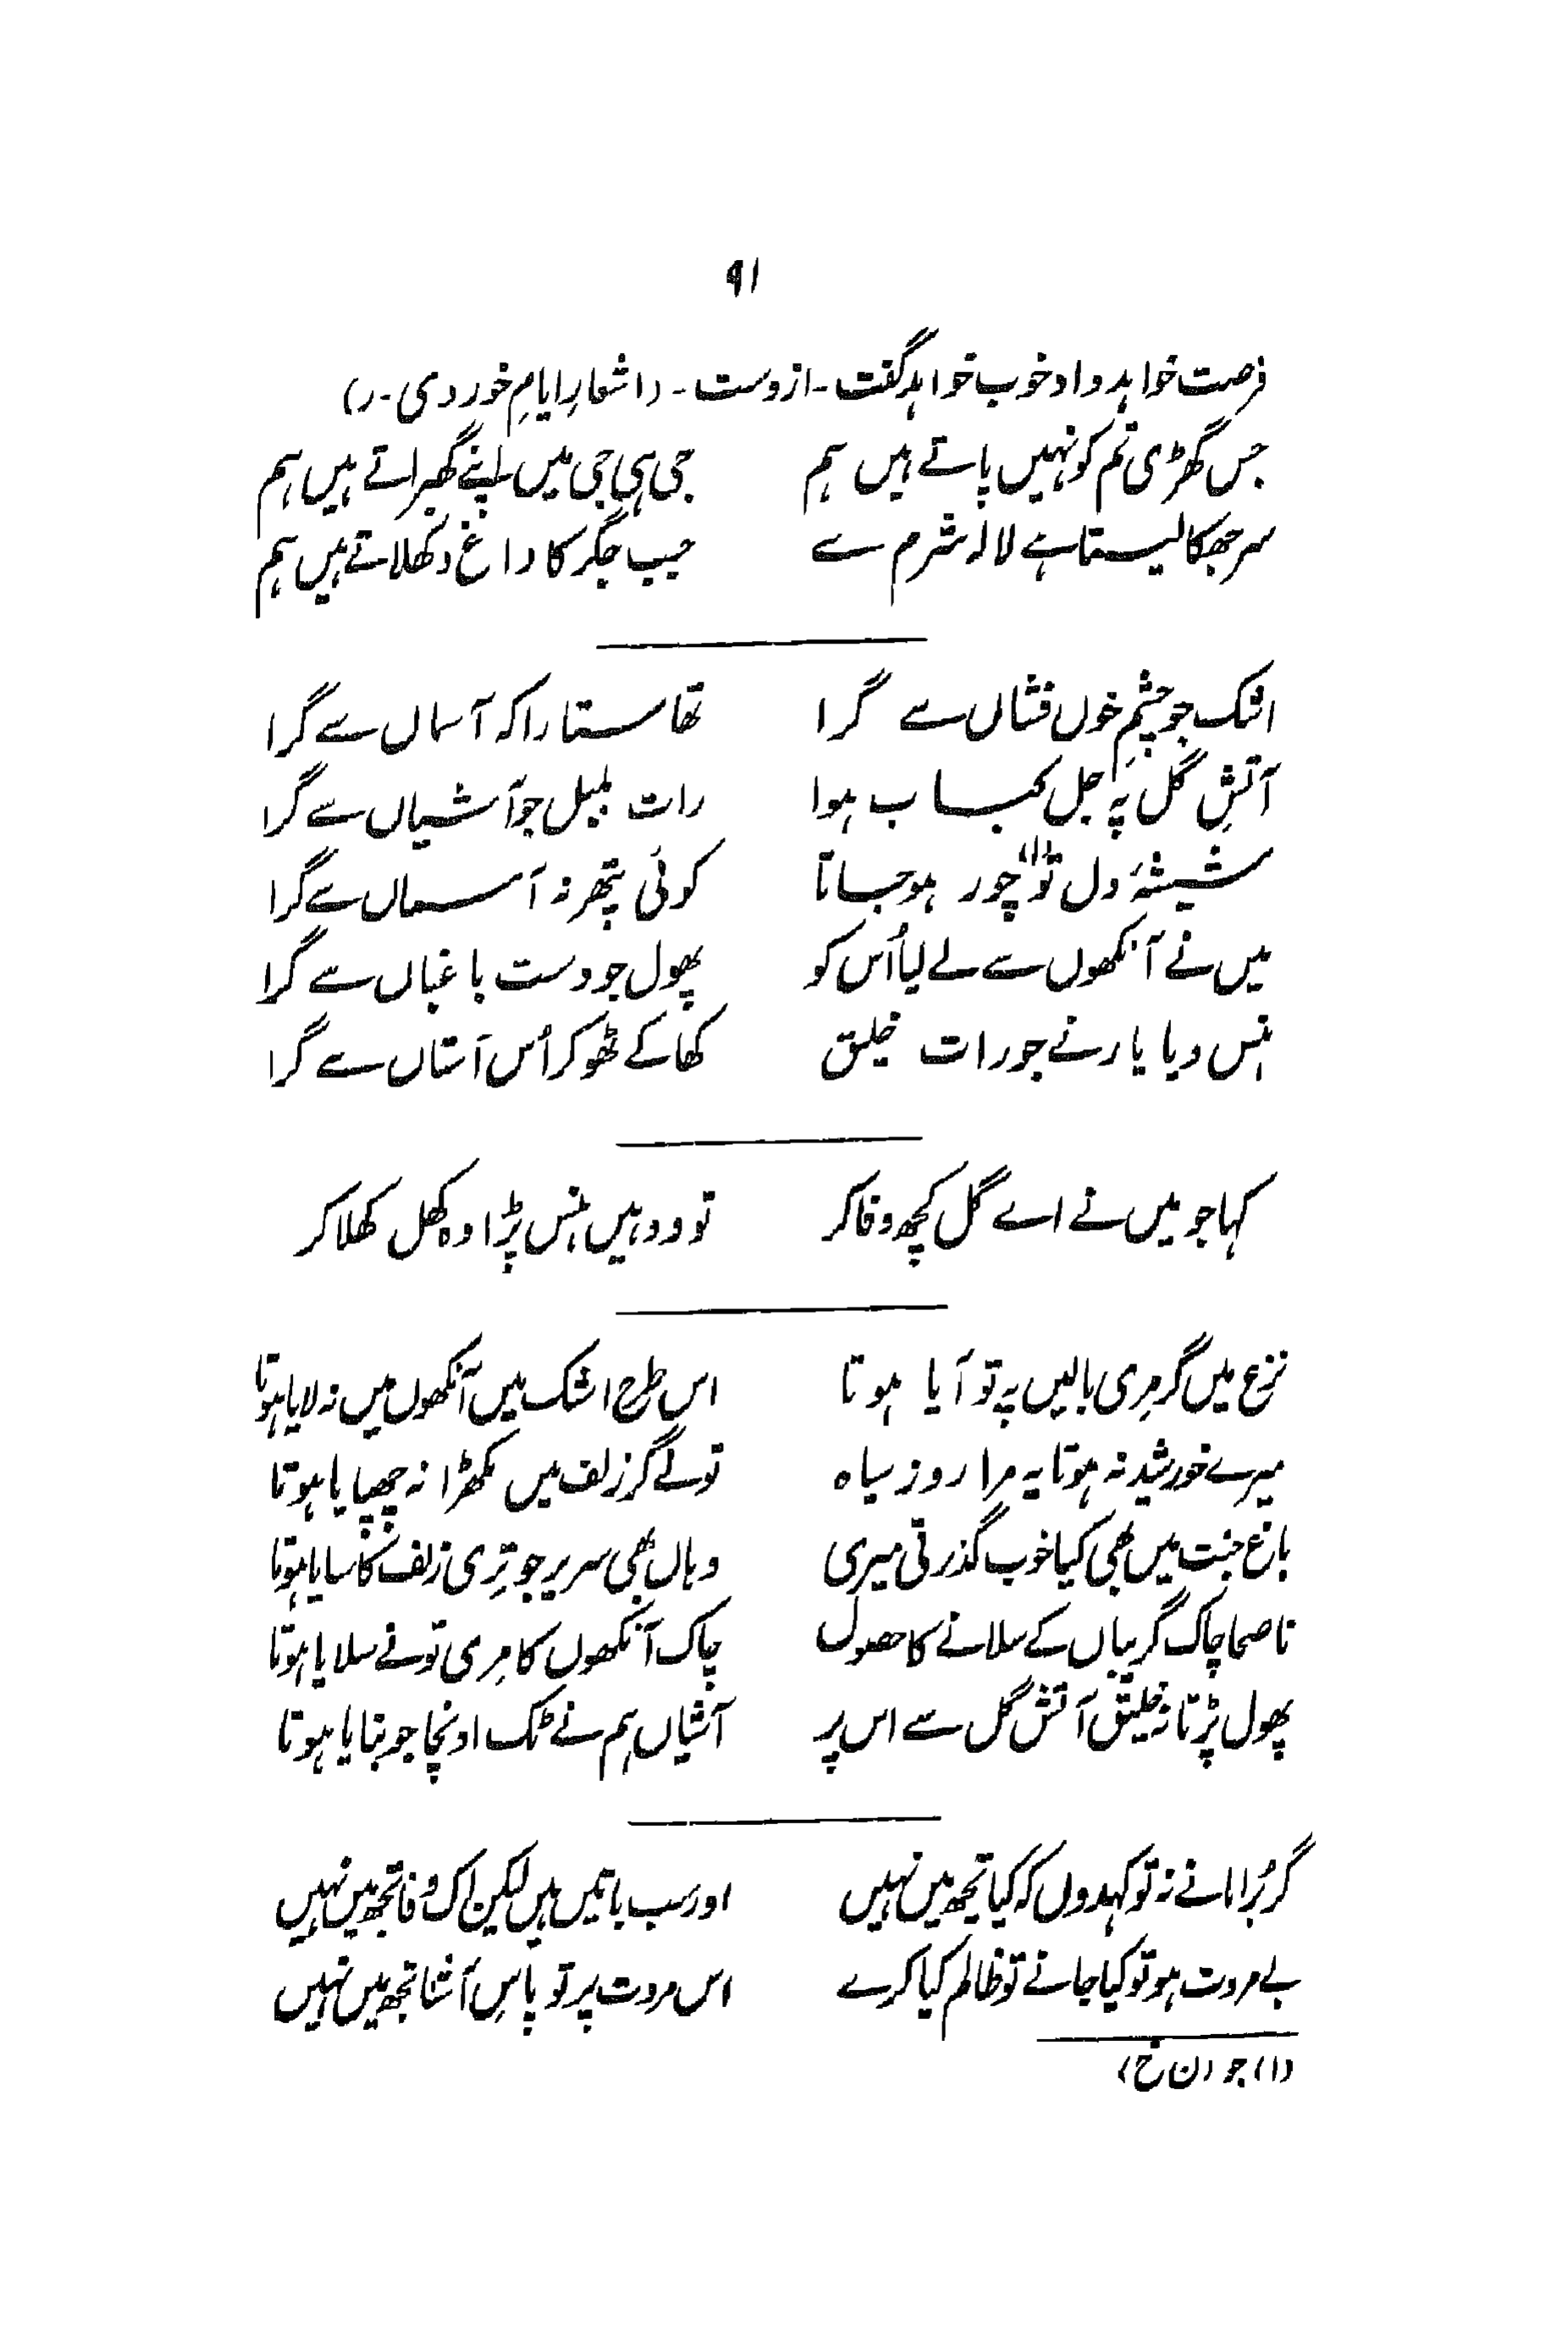 ۹۱
فرصت خواہد داد خوب خواہد گفت ۔ ازوست ۔ (اشعارِ ایامِ خوردی ۔ ر)
جس گھڑی تم کو نہیں پاتے ہیں ہم جی ہی جی میں اپنے گھبراتے ہیں ہم
سر جھکا لیستا ہے لالہ شرم سے جیب جگر کا داغ دکھلاتے ہیں ہم
اشک جو چشمِ خوں فشاں سے گرا تھا ستارا کہ آسماں سے گرا
آتشِ گل پہ جل کباب ہوا رات بلبل جو آشیاں سے گرا
شیشۂ دل تو(۱) چور ہوجاتا کوئی پتھر نہ آسماں سے گرا
میں نے آنکھوں سے لے لیا اُس کو پھول جو دست باغباں سے گرا
ہنس دیا یار نے جو رات خلیق کھا کے ٹھوکر اُس آستاں سے گرا
کہا جو میں نے اے گل کچھ وفا کر تو ووہیں ہنس پڑا وہ کھل کھلا کر
نزع میں گر مِری بالیں پہ تو آیا ہوتا اس طرح اشک میں آنکھوں میں نہ لایا ہوتا
میرے خورشید نہ ہوتا یہ مِرا روز سیاہ تونے گر زلف میں مکھڑا نہ چھپایا ہوتا
باغِ جنت میں بھی کیا خوب گذرتی میری وہاں بھی سر پر جو تِری زلف کا سایا ہوتا
ناصحا چاک گریباں کے سلانے کا حصول چاک آنکھوں کا مِری تونے سلایا ہوتا
پھول پڑتا نہ خلیق آتش گل سے اس پر آشیاں ہم نے ٹک اونچا جو بنایا ہوتا
گر بُرا مانے نہ تو کہدوں کہ کیا تجھ میں نہیں اور سب باتیں ہیں لیکن اک وفا تجھ میں نہیں
بے مروت ہو تو کیا جانے تو ظالم کیا کرے اس مروت پر تو پاسِ آشنا تجھ میں نہیں
(۱) جو (ن خ)